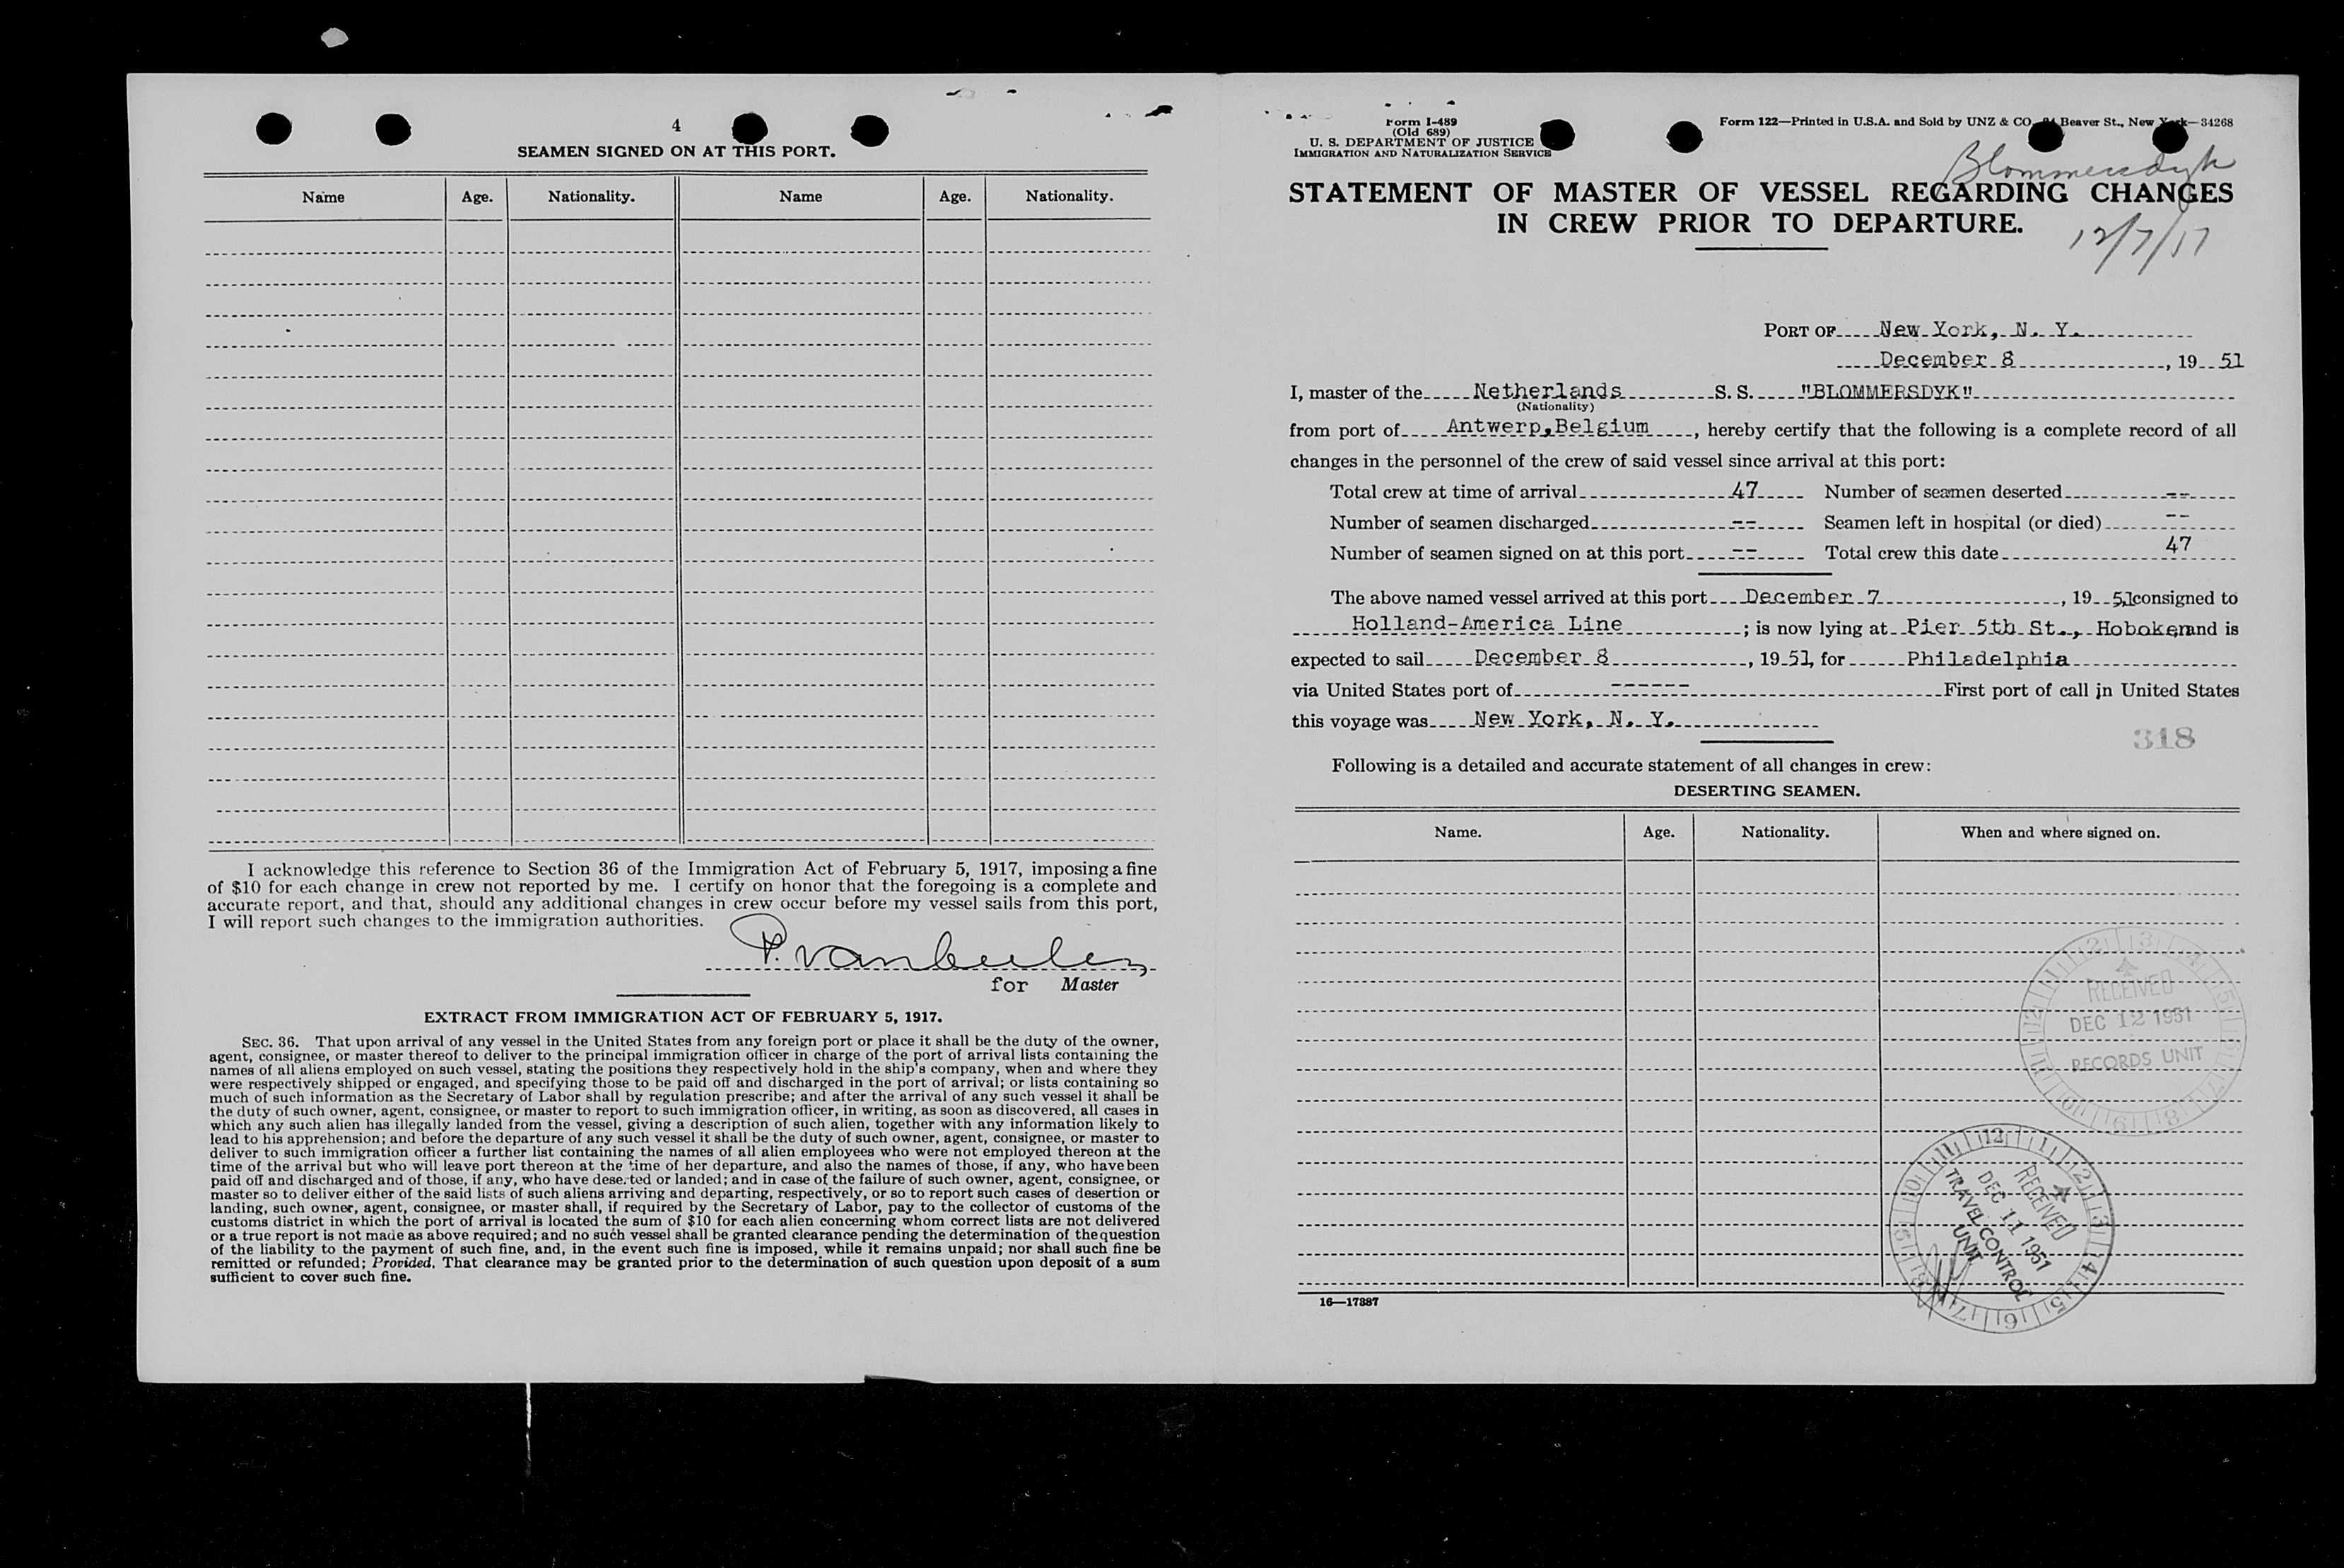 4
SEAMEN SIGNED ON AT THIS PORT.
Name Age. Nationality. Name Age. Nationality.
I acknowledge this reference to Section 36 of the Immigration Act of February 5, 1917, imposing a fine
of $10 for each change in crew not reported by me. I certify on honor that the foregoing is a complete and
accurate report, and that, should any additional changes in crew occur before my vessel sails from this port,
I will report such changes to the immigration authorities.
for Master
EXTRACT FROM IMMIGRATION ACT OF FEBRUARY 5, 1917.
SEC. 36. That upon arrival of any vessel in the United States from any foreign port or place it shall be the duty of the owner,
agent, consignee, or master thereof to deliver to the principal immigration officer in charge of the port of arrival lists containing the
names of all aliens employed on such vessel, stating the positions they respectively hold in the ship's company, when and where they
were respectively shipped or engaged, and specifying those to be paid off and discharged in the port of arrival; or lists containing so
much of such information as the Secretary of Labor shall by regulation prescribe; and after the arrival of any such vessel it shall be
the duty of such owner, agent, consignee, or master to report to such immigration officer, in writing, as soon as discovered, all cases in
which any such alien has illegally landed from the vessel, giving a description of such alien, together with any information likely to
lead to his apprehension; and before the departure of any such vessel it shall be the duty of such owner, agent, consignee, or master to
deliver to such immigration officer a further list containing the names of all alien employees who were not employed thereon at the
time of the arrival but who will leave port thereon at the time of her departure, and also the names of those, if any, who have been
paid off and discharged and of those, if any, who have deserted or landed; and in case of the failure of such owner, agent, consignee, or
master so to deliver either of the said lists of such aliens arriving and departing, respectively, or so to report such cases of desertion or
landing, such owner, agent, consignee, or master shall, if required by the Secretary of Labor, pay to the collector of customs of the
customs district in which the port of arrival is located the sum of $10 for each alien concerning whom correct lists are not delivered
or a true report is not made as above required; and no such vessel shall be granted clearance pending the determination of the question
of the liability to the payment of such fine, and, in the event such fine is imposed, while it remains unpaid; nor shall such fine be
remitted or refunded; Provided, That clearance may be granted prior to the determination of such question upon deposit of a sum
sufficient to cover such fine.
Form I-489
(Old 689)
U. S. DEPARTMENT OF JUSTICE
IMMIGRATION AND NATURALIZATION SERVICE
Form 122—Printed in U.S.A. and Sold by UNZ & CO. Beaver St., New York—34268
Blommersdyk
STATEMENT OF MASTER OF VESSEL REGARDING CHANGES
IN CREW PRIOR TO DEPARTURE.
12/7/51
PORT OF New York, N. Y.
December 8, 19 51
I, master of the Netherlands S. S. "BLOMMERSDYK"
(Nationality)
from port of Antwerp,Belgium, hereby certify that the following is a complete record of all
changes in the personnel of the crew of said vessel since arrival at this port:
Total crew at time of arrival 47 Number of seamen deserted --
Number of seamen discharged -- Seamen left in hospital (or died) --
Number of seamen signed on at this port -- Total crew this date 47
The above named vessel arrived at this port December 7, 19 51 consigned to
Holland-America Line; is now lying at Pier 5th St., Hoboken and is
expected to sail December 8, 19 51, for Philadelphia
via United States port of ------ First port of call in United States
this voyage was New York, N. Y.
318
Following is a detailed and accurate statement of all changes in crew:
DESERTING SEAMEN.
Name. Age. Nationality. When and where signed on.
RECEIVED
DEC 12 1951
RECORDS UNIT
RECEIVED
DEC 11 1951
TRAVEL CONTROL
UNIT
16—17387